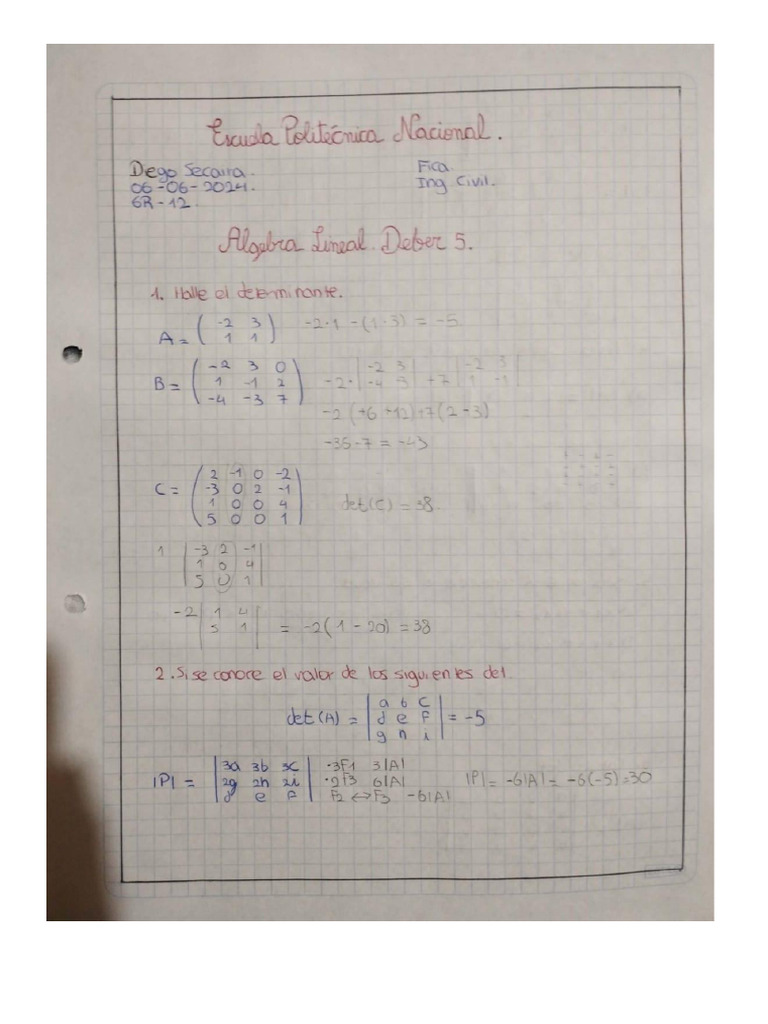 Escuela Politécnica Nacional.
Diego Secaira. Fica.
06-06-2024. Ing Civil.
GR-12.
Algebra Lineal. Deber 5.
1. Halle el determinante.
A = ( -2 3 ; 1 1 ) -2·1 -(1·3) = -5
B = ( -2 3 0 ; 1 -1 2 ; -4 -3 7 ) -2· | -2 3 ; | +7 | -2 3 ; 1 -1 |
-2(+6 +12)+7(2-3)
-35-7 = -43
C = ( 2 -1 0 -2 ; -3 0 2 -1 ; 1 0 0 4 ; 5 0 0 1 ) det(C) = 38
1 | -3 2 -1 ; 1 0 4 ; 5 0 1 |
-2 | 1 4 ; 5 1 | = -2(1-20) = 38
2. Si se conoce el valor de los siguientes det.
det(A) = | a b c ; d e f ; g h i | = -5
|P| = | 3a 3b 3c ; 2g 2h 2i ; d e f | ·3F1 3|A| ·2F3 6|A| F2 ↔ F3 -6|A| |P| = -6|A| = -6(-5)=30